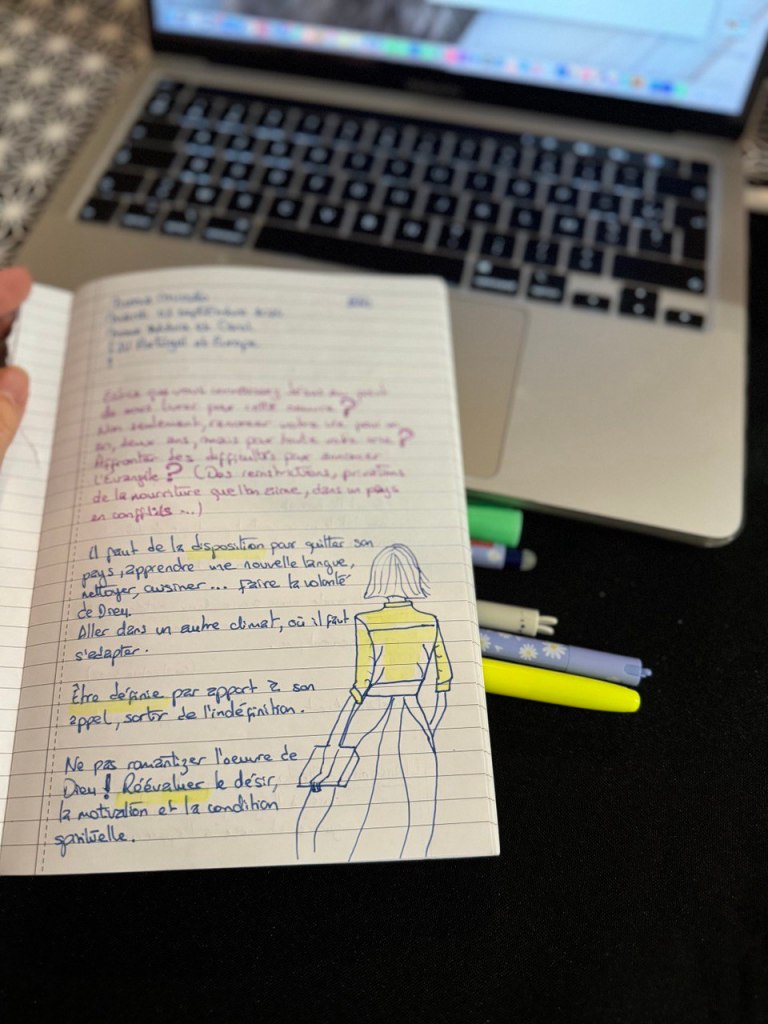 septembre
Portugal et Europe
Estce que vous
de vous livrer pour cette oeuvre?
Non seulement, renoncer votre vie pour un
an, deux ans, mais pour toute votre vie?
Affronter des difficultés pour annoncer
l'Évangile? (Des privations
de la nourriture que l'on aime, dans un pays
en conflits ...)
il faut de la disposition pour quitter son
pays, apprendre une nouvelle langue,
nettoyer, cuisiner ... faire la volonté
de Dieu.
Aller dans un autre climat, où il faut
s'adapter.
Être définie par apport à son
appel, sortir de l'indéfinition.
Ne pas romantizer l'oeuvre de
Dieu! Réévaluer le désir,
la motivation et la condition
spirituelle.